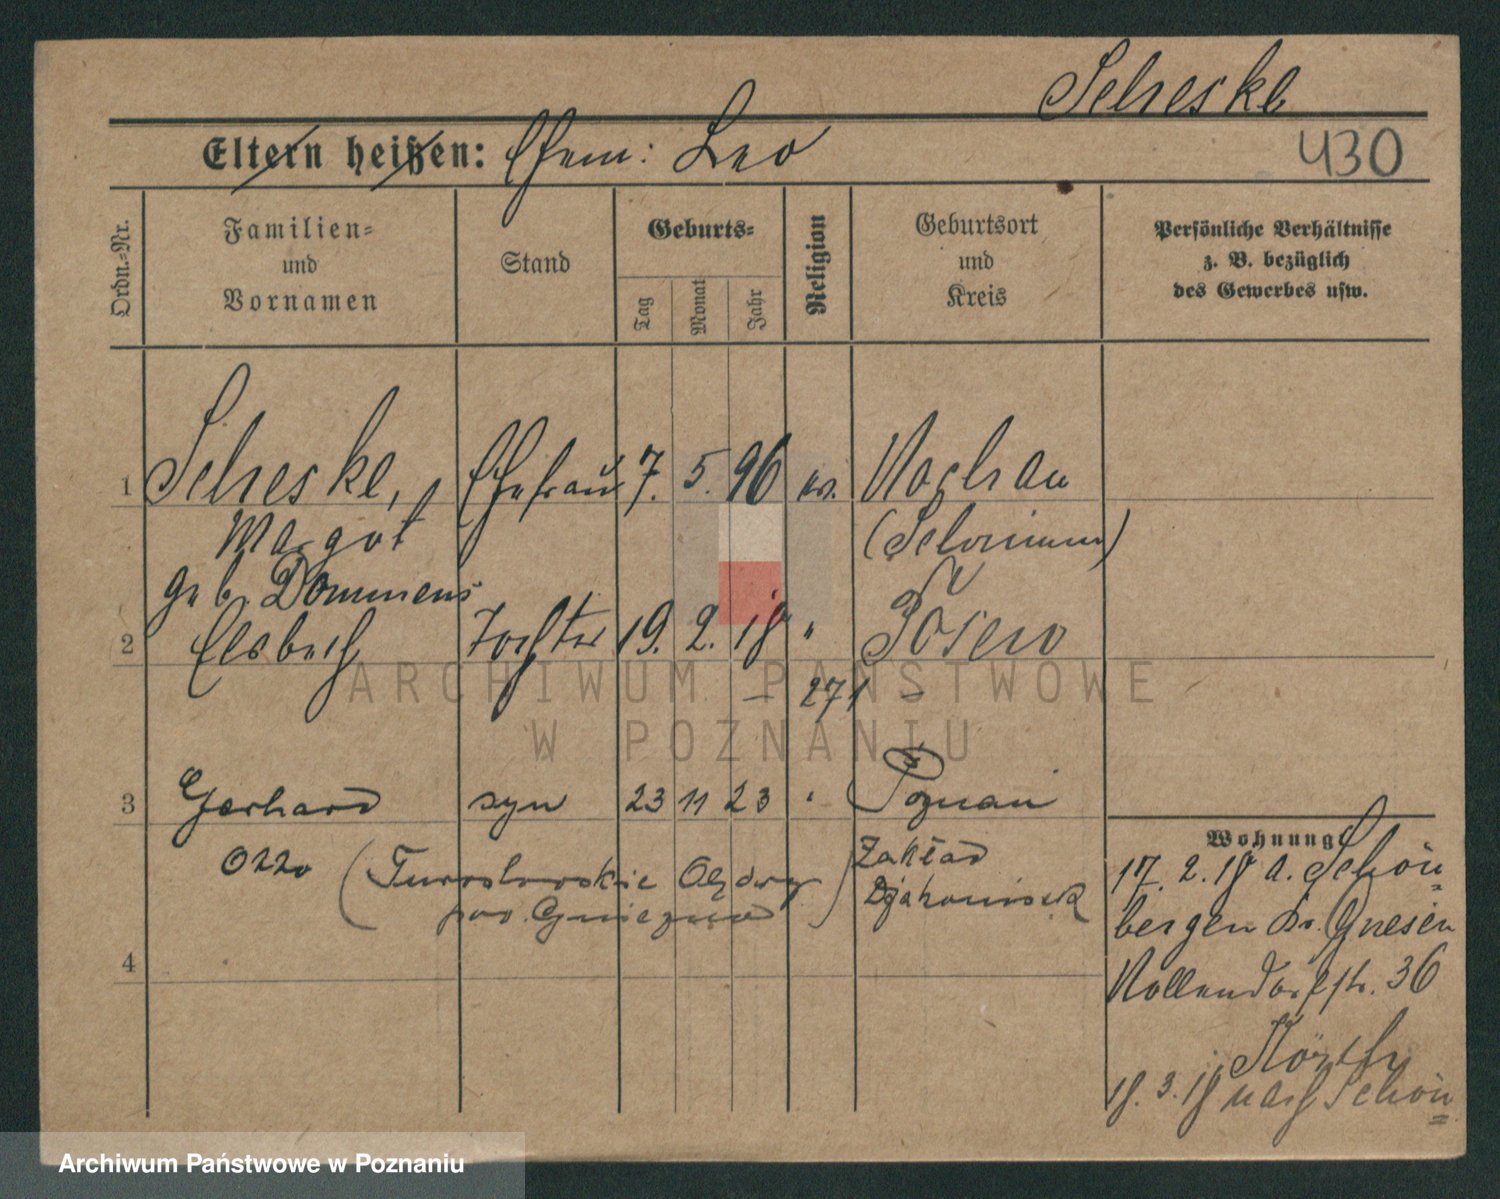 Scheske
Eltern heißen: Ehem: Leo
430
Ordn.-Nr.
Familien-
und
Vornamen
Stand
Geburts-
Tag
Monat
Jahr
Religion
Geburtsort
und
Kreis
Persönliche Verhältnisse
z. B. bezüglich
des Gewerbes usw.
1 Scheske, Ehefrau 7. 5. 96 ev. Wachau
Margot (Schrimm)
geb. Dommens
2 Elsbeth Tochter 19. 2. 18 " Posen
– 271 –
3 Gerhard syn 23 11 23 " Poznań
Otto
Zakład
Djakonisek
4
Wohnung:
17. 2. 18 a. Schön
bergen Kr. Gnesen
Nollendorfstr. 36
18. 3. 18 nach Schön
ARCHIWUM PAŃSTWOWE
W POZNANIU
Archiwum Państwowe w Poznaniu